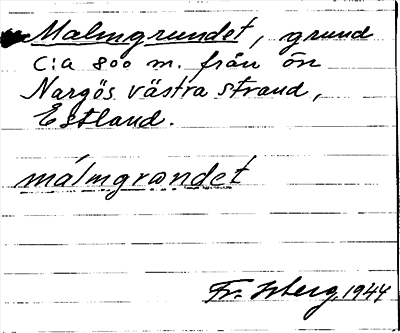 Malmgrundet, grund
c:a 800 m. från ön
Nargös västra strand,
Estland.
málmgrəndet
Fr. Isberg, 1944